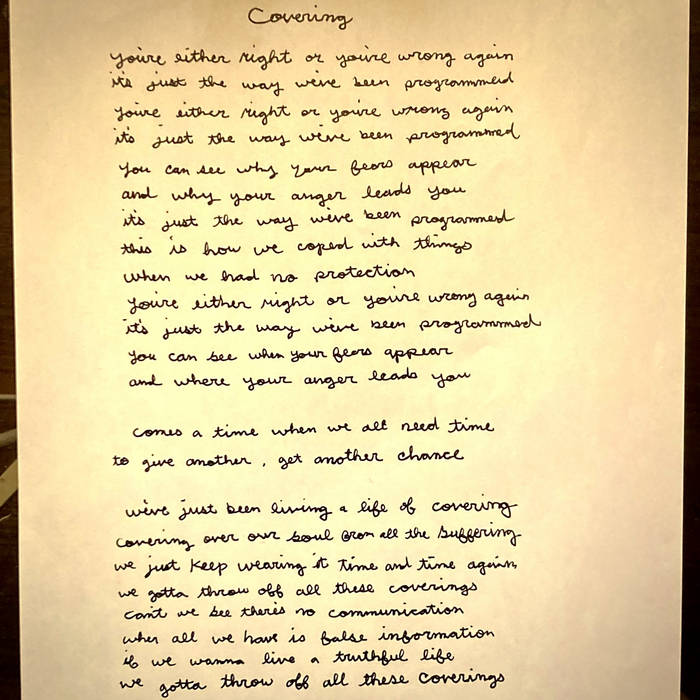 Covering
you're either right or you're wrong again
it's just the way we've been programmed
you're either right or you're wrong again
it's just the way we've been programmed
you can see why your fears appear
and why your anger leads you
it's just the way we've been programmed
this is how we coped with things
when we had no protection
you're either right or you're wrong again
it's just the way we've been programmed
you can see when your fears appear
and where your anger leads you
comes a time when we all need time
to give another, get another chance
we've just been living a life of covering
covering over our soul from all the suffering
we just keep wearing it time and time again
we gotta throw off all these coverings
can't we see there's no communication
when all we have is false information
if we wanna live a truthful life
we gotta throw off all these coverings